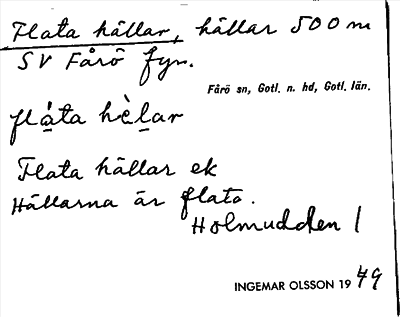 Flata hällar, hällar 500 m
SV Fårö fyr.
Fårö sn, Gotl. n. hd, Gotl. län.
flạ́ta hè̱lar
Flata hällar ek
Hällarna är flata.
Holmudden 1
INGEMAR OLSSON 1949